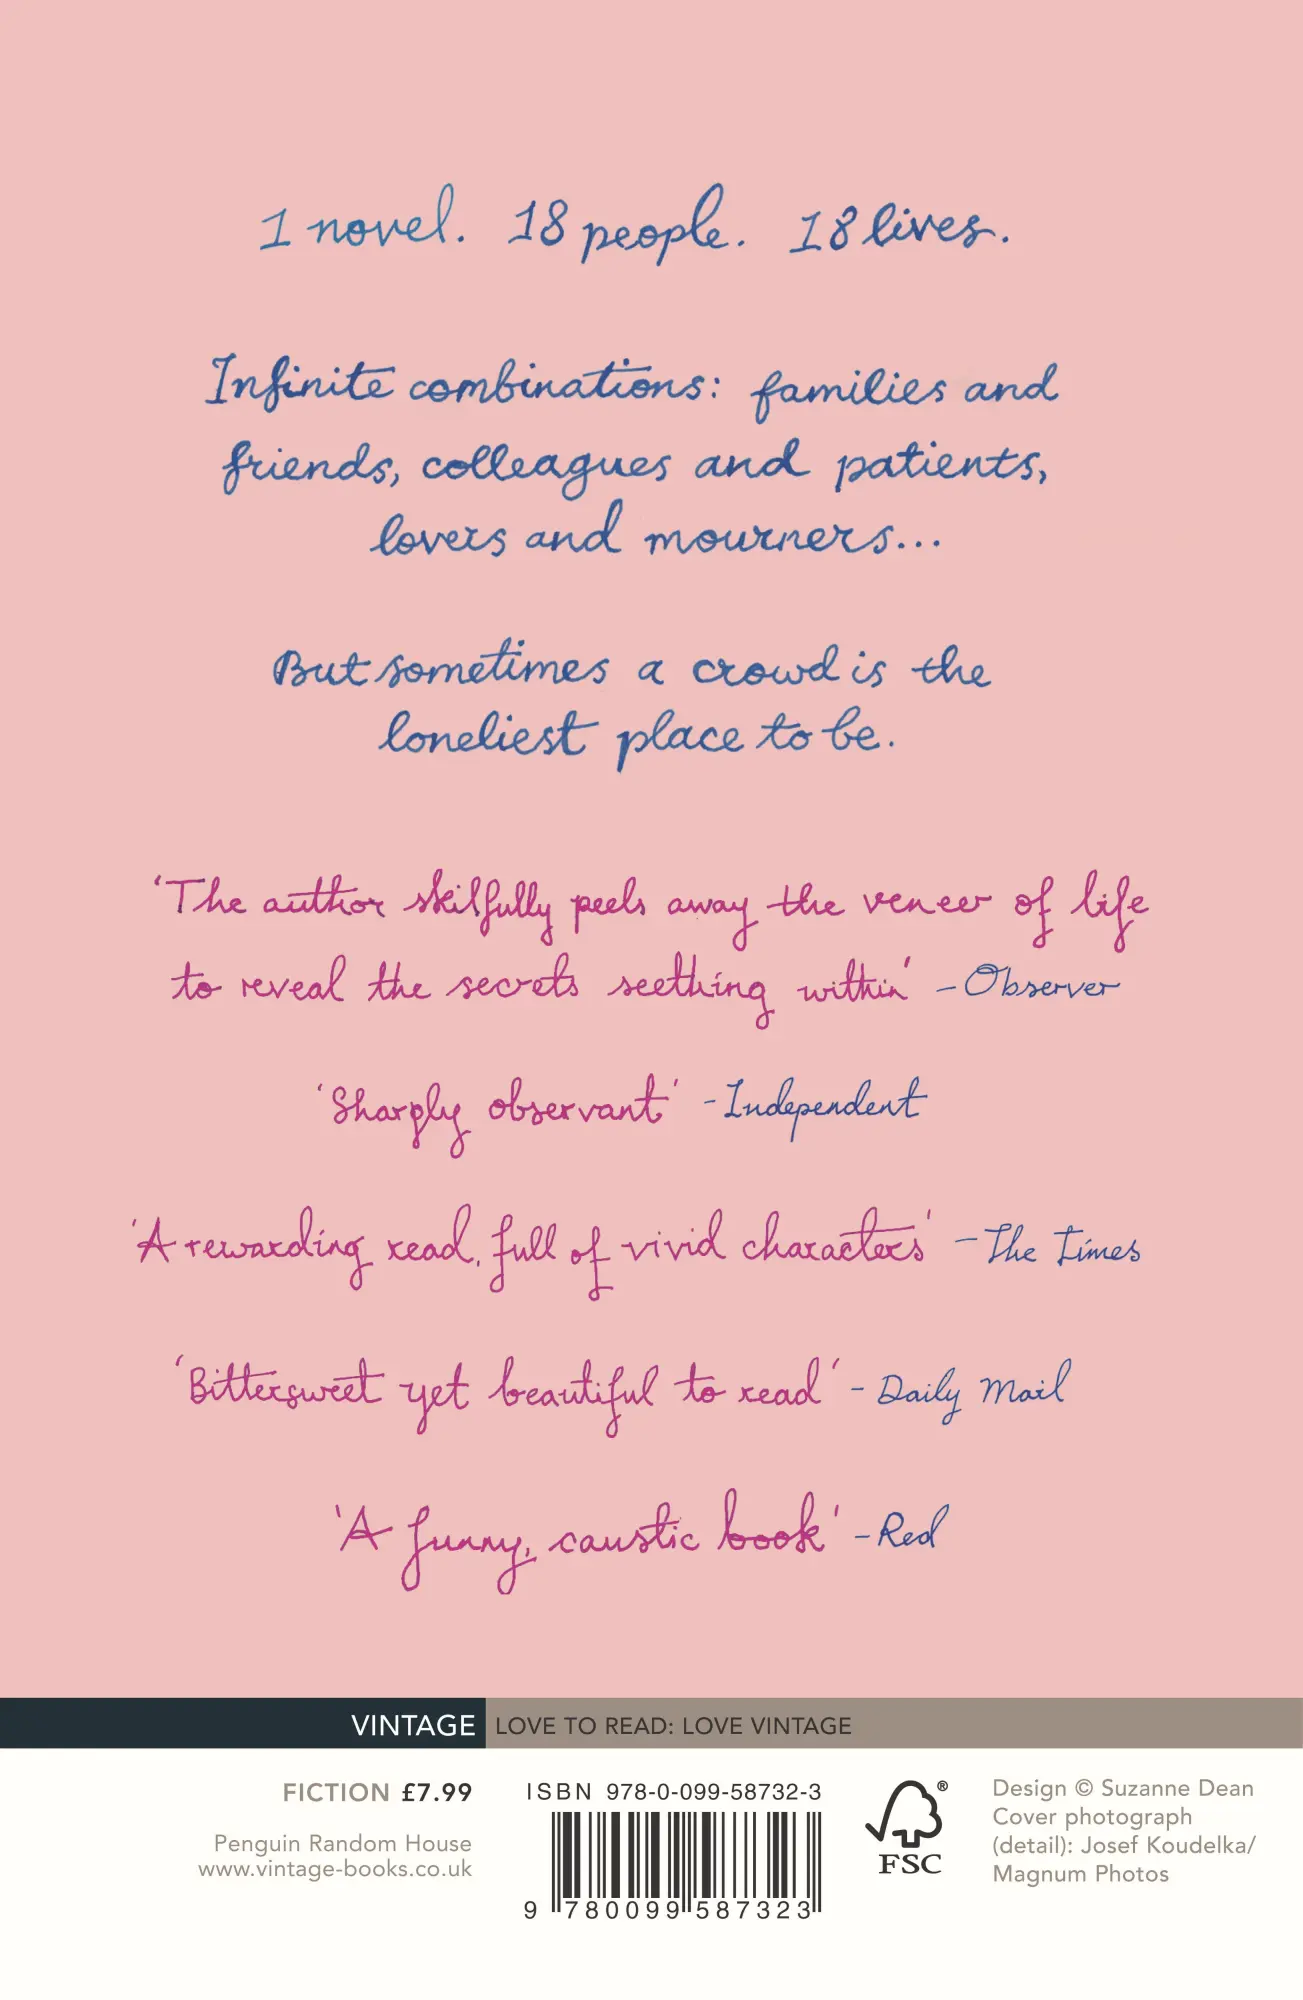 1 novel. 18 people. 18 lives.
Infinite combinations: families and
friends, colleagues and patients,
lovers and mourners...
But sometimes a crowd is the
loneliest place to be.
'The author skilfully peels away the veneer of life
to reveal the secrets seething within' – Observer
'Sharply observant' - Independent
'A rewarding read, full of vivid characters' – The Times
'Bittersweet yet beautiful to read' - Daily Mail
'A funny, caustic book' – Red
VINTAGE LOVE TO READ: LOVE VINTAGE
FICTION £7.99
Penguin Random House
www.vintage-books.co.uk
ISBN 978-0-099-58732-3
9 780099 587323
®
FSC
Design © Suzanne Dean
Cover photograph
(detail): Josef Koudelka/
Magnum Photos